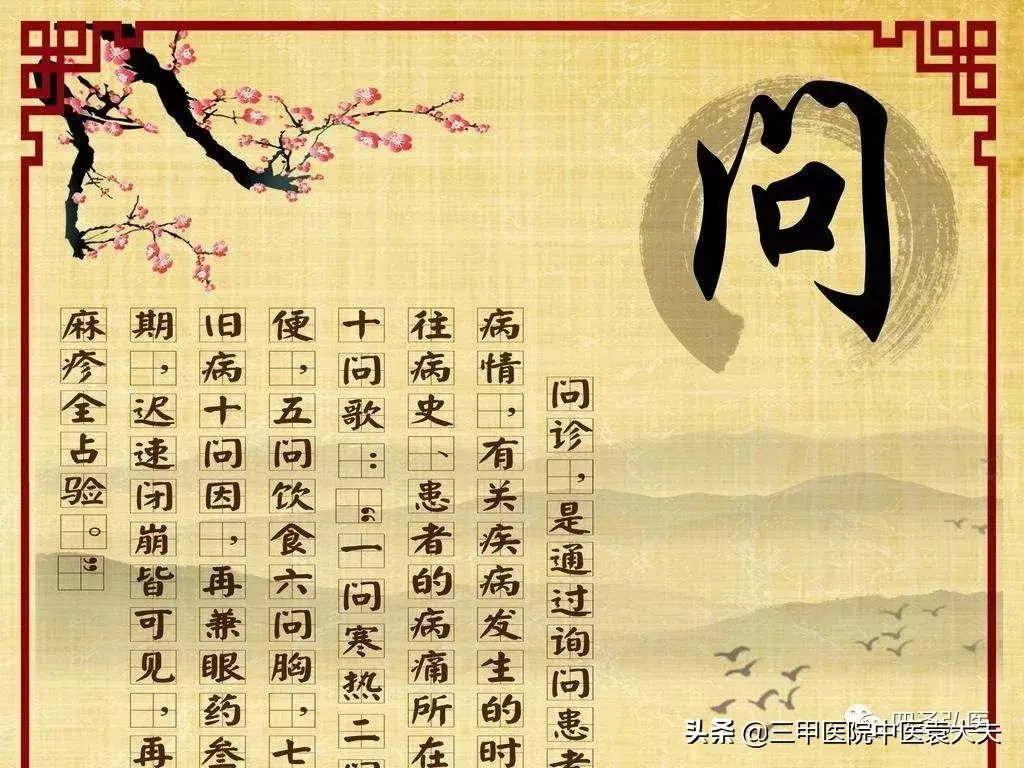 问
问诊，是通过询问患者
病情，有关疾病发生的时
往病史、患者的病痛所在
十问歌：“一问寒热二问
便，五问饮食六问胸，七
旧病十问因，再兼眼药叁
期，迟速闭崩皆可见，再
麻疹全占验。”
四圣弘医
头条 @三甲医院中医袁大夫